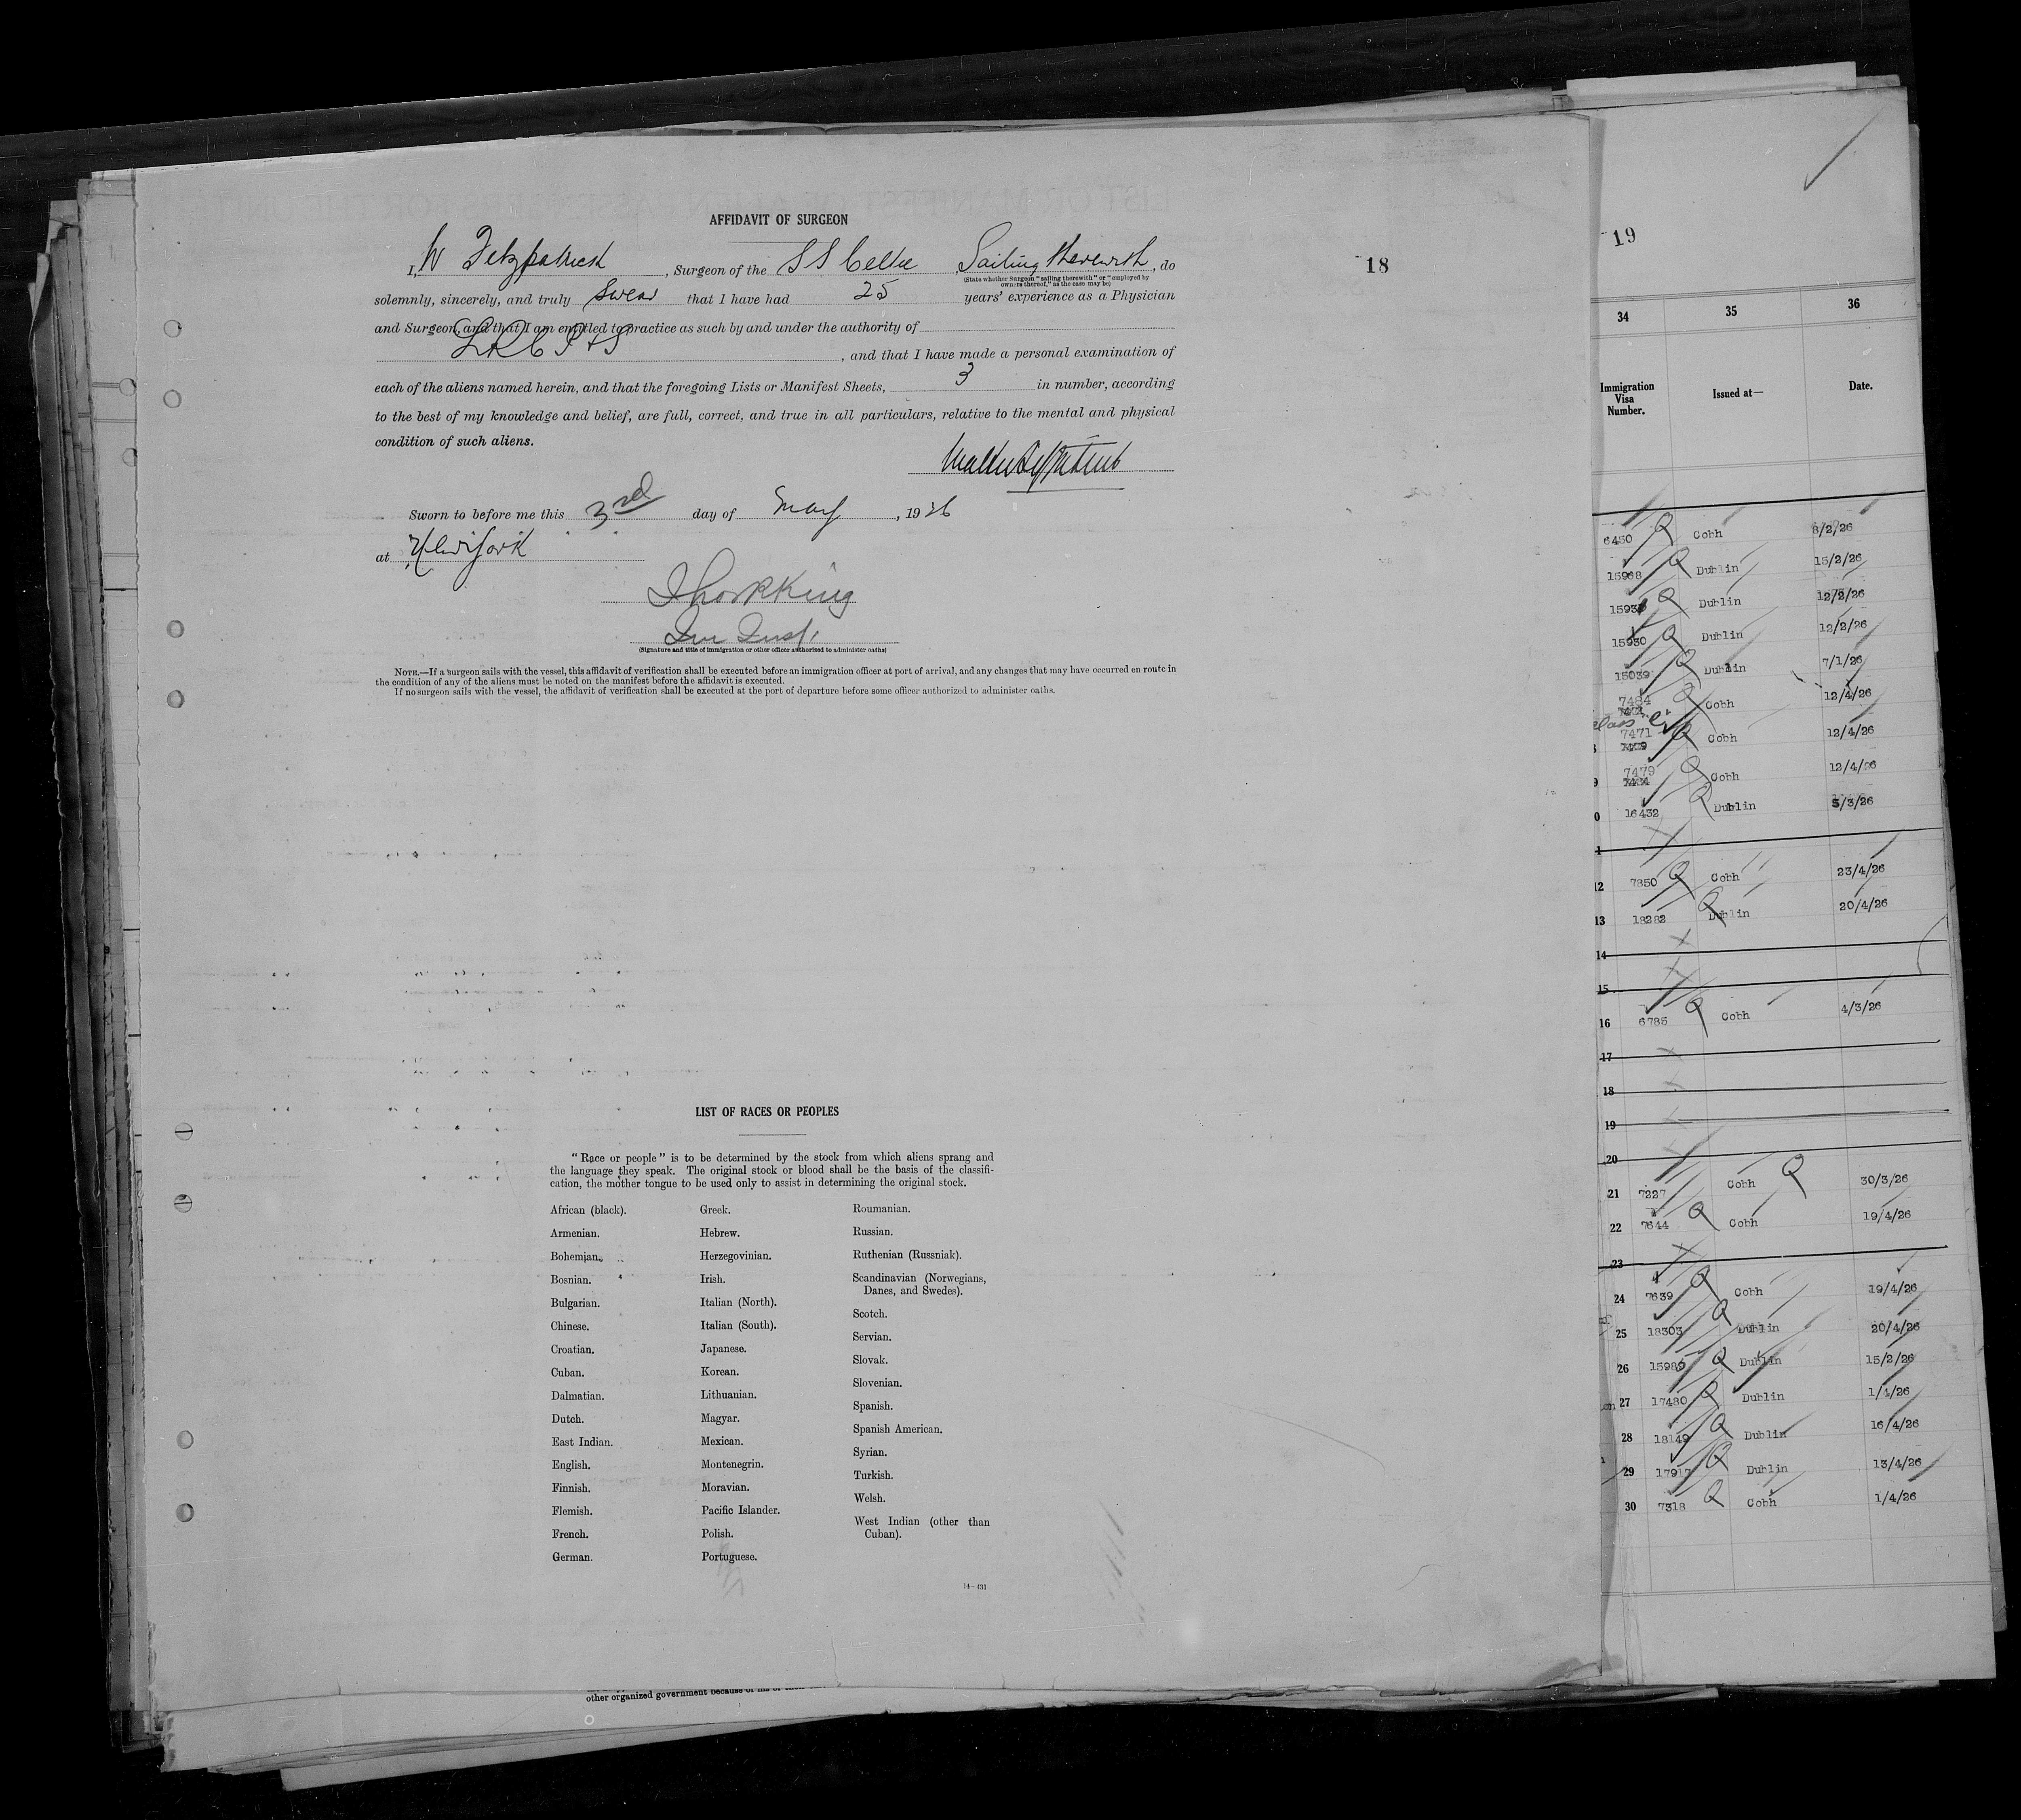 AFFIDAVIT OF SURGEON
I, W Fitzpatrick, Surgeon of the SS Celtic, Sailing therewith, do
(State whether Surgeon "sailing therewith" or "employed by
owners thereof," as the case may be)
solemnly, sincerely, and truly swear that I have had 25 years' experience as a Physician
and Surgeon, and that I am entitled to practice as such by and under the authority of
LRCP+S, and that I have made a personal examination of
each of the aliens named herein, and that the foregoing Lists or Manifest Sheets, 3 in number, according
to the best of my knowledge and belief, are full, correct, and true in all particulars, relative to the mental and physical
condition of such aliens.
Walter Fitzpatrick
Sworn to before me this 3rd day of May, 1926
at New York
(Signature and title of immigration or other officer authorized to administer oaths)
NOTE.—If a surgeon sails with the vessel, this affidavit of verification shall be executed before an immigration officer at port of arrival, and any changes that may have occurred en route in
the condition of any of the aliens must be noted on the manifest before the affidavit is executed.
If no surgeon sails with the vessel, the affidavit of verification shall be executed at the port of departure before some officer authorized to administer oaths.
18
LIST OF RACES OR PEOPLES
"Race or people" is to be determined by the stock from which aliens sprang and
the language they speak. The original stock or blood shall be the basis of the classifi-
cation, the mother tongue to be used only to assist in determining the original stock.
African (black).
Armenian.
Bohemian.
Bosnian.
Bulgarian.
Chinese.
Croatian.
Cuban.
Dalmatian.
Dutch.
East Indian.
English.
Finnish.
Flemish.
French.
German.
Greek.
Hebrew.
Herzegovinian.
Irish.
Italian (North).
Italian (South).
Japanese.
Korean.
Lithuanian.
Magyar.
Mexican.
Montenegrin.
Moravian.
Pacific Islander.
Polish.
Portuguese.
Roumanian.
Russian.
Ruthenian (Russniak).
Scandinavian (Norwegians,
Danes, and Swedes).
Scotch.
Servian.
Slovak.
Slovenian.
Spanish.
Spanish American.
Syrian.
Turkish.
Welsh.
West Indian (other than
Cuban).
14—431
other organized government because of his or
19
34 35 36
Immigration
Visa
Number.
Issued at—
Date.
6450 Q Cobh 8/2/26
15968 Q Dublin 15/2/26
Q Dublin 12/2/26
15930 Q Dublin 12/2/26
15039 Q Dublin 7/1/26
7484 Q Cobh 12/4/26
7471 Q Cobh 12/4/26
7479 Q Cobh 12/4/26
16432 Q Dublin 3/3/26
12 7850 Q Cobh 23/4/26
13 18282 Q Dublin 20/4/26
14
15
16 6785 Q Cobh 4/3/26
17
18
19
20
21 7227 Cobh Q 30/3/26
22 7644 Q Cobh 19/4/26
23
24 7639 Q Cobh 19/4/26
25 18303 Q Dublin 20/4/26
26 15989 Q Dublin 15/2/26
27 17480 Q Dublin 1/4/26
28 18149 Q Dublin 16/4/26
29 17917 Q Dublin 13/4/26
30 7318 Q Cobh 1/4/26